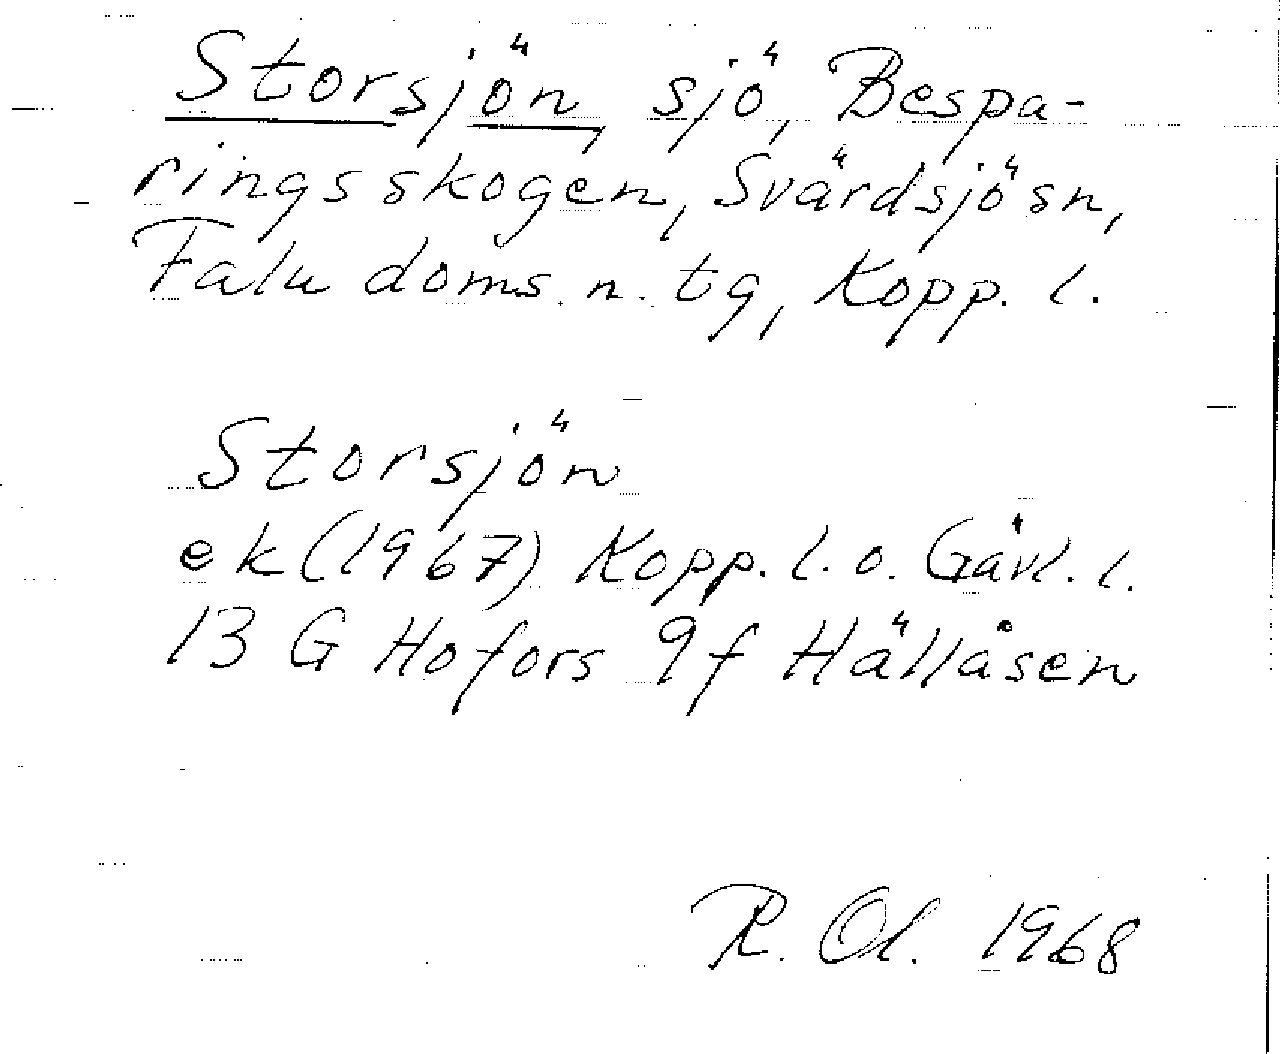 Storsjön, sjö, Bespa-
ringsskogen, Svärdsjö sn,
Falu doms. n. tg, Kopp. l.
Storsjön
ek (1967) Kopp. l. o. Gävl. l.
13 G Hofors 9f Hällåsen
R. Ol. 1968